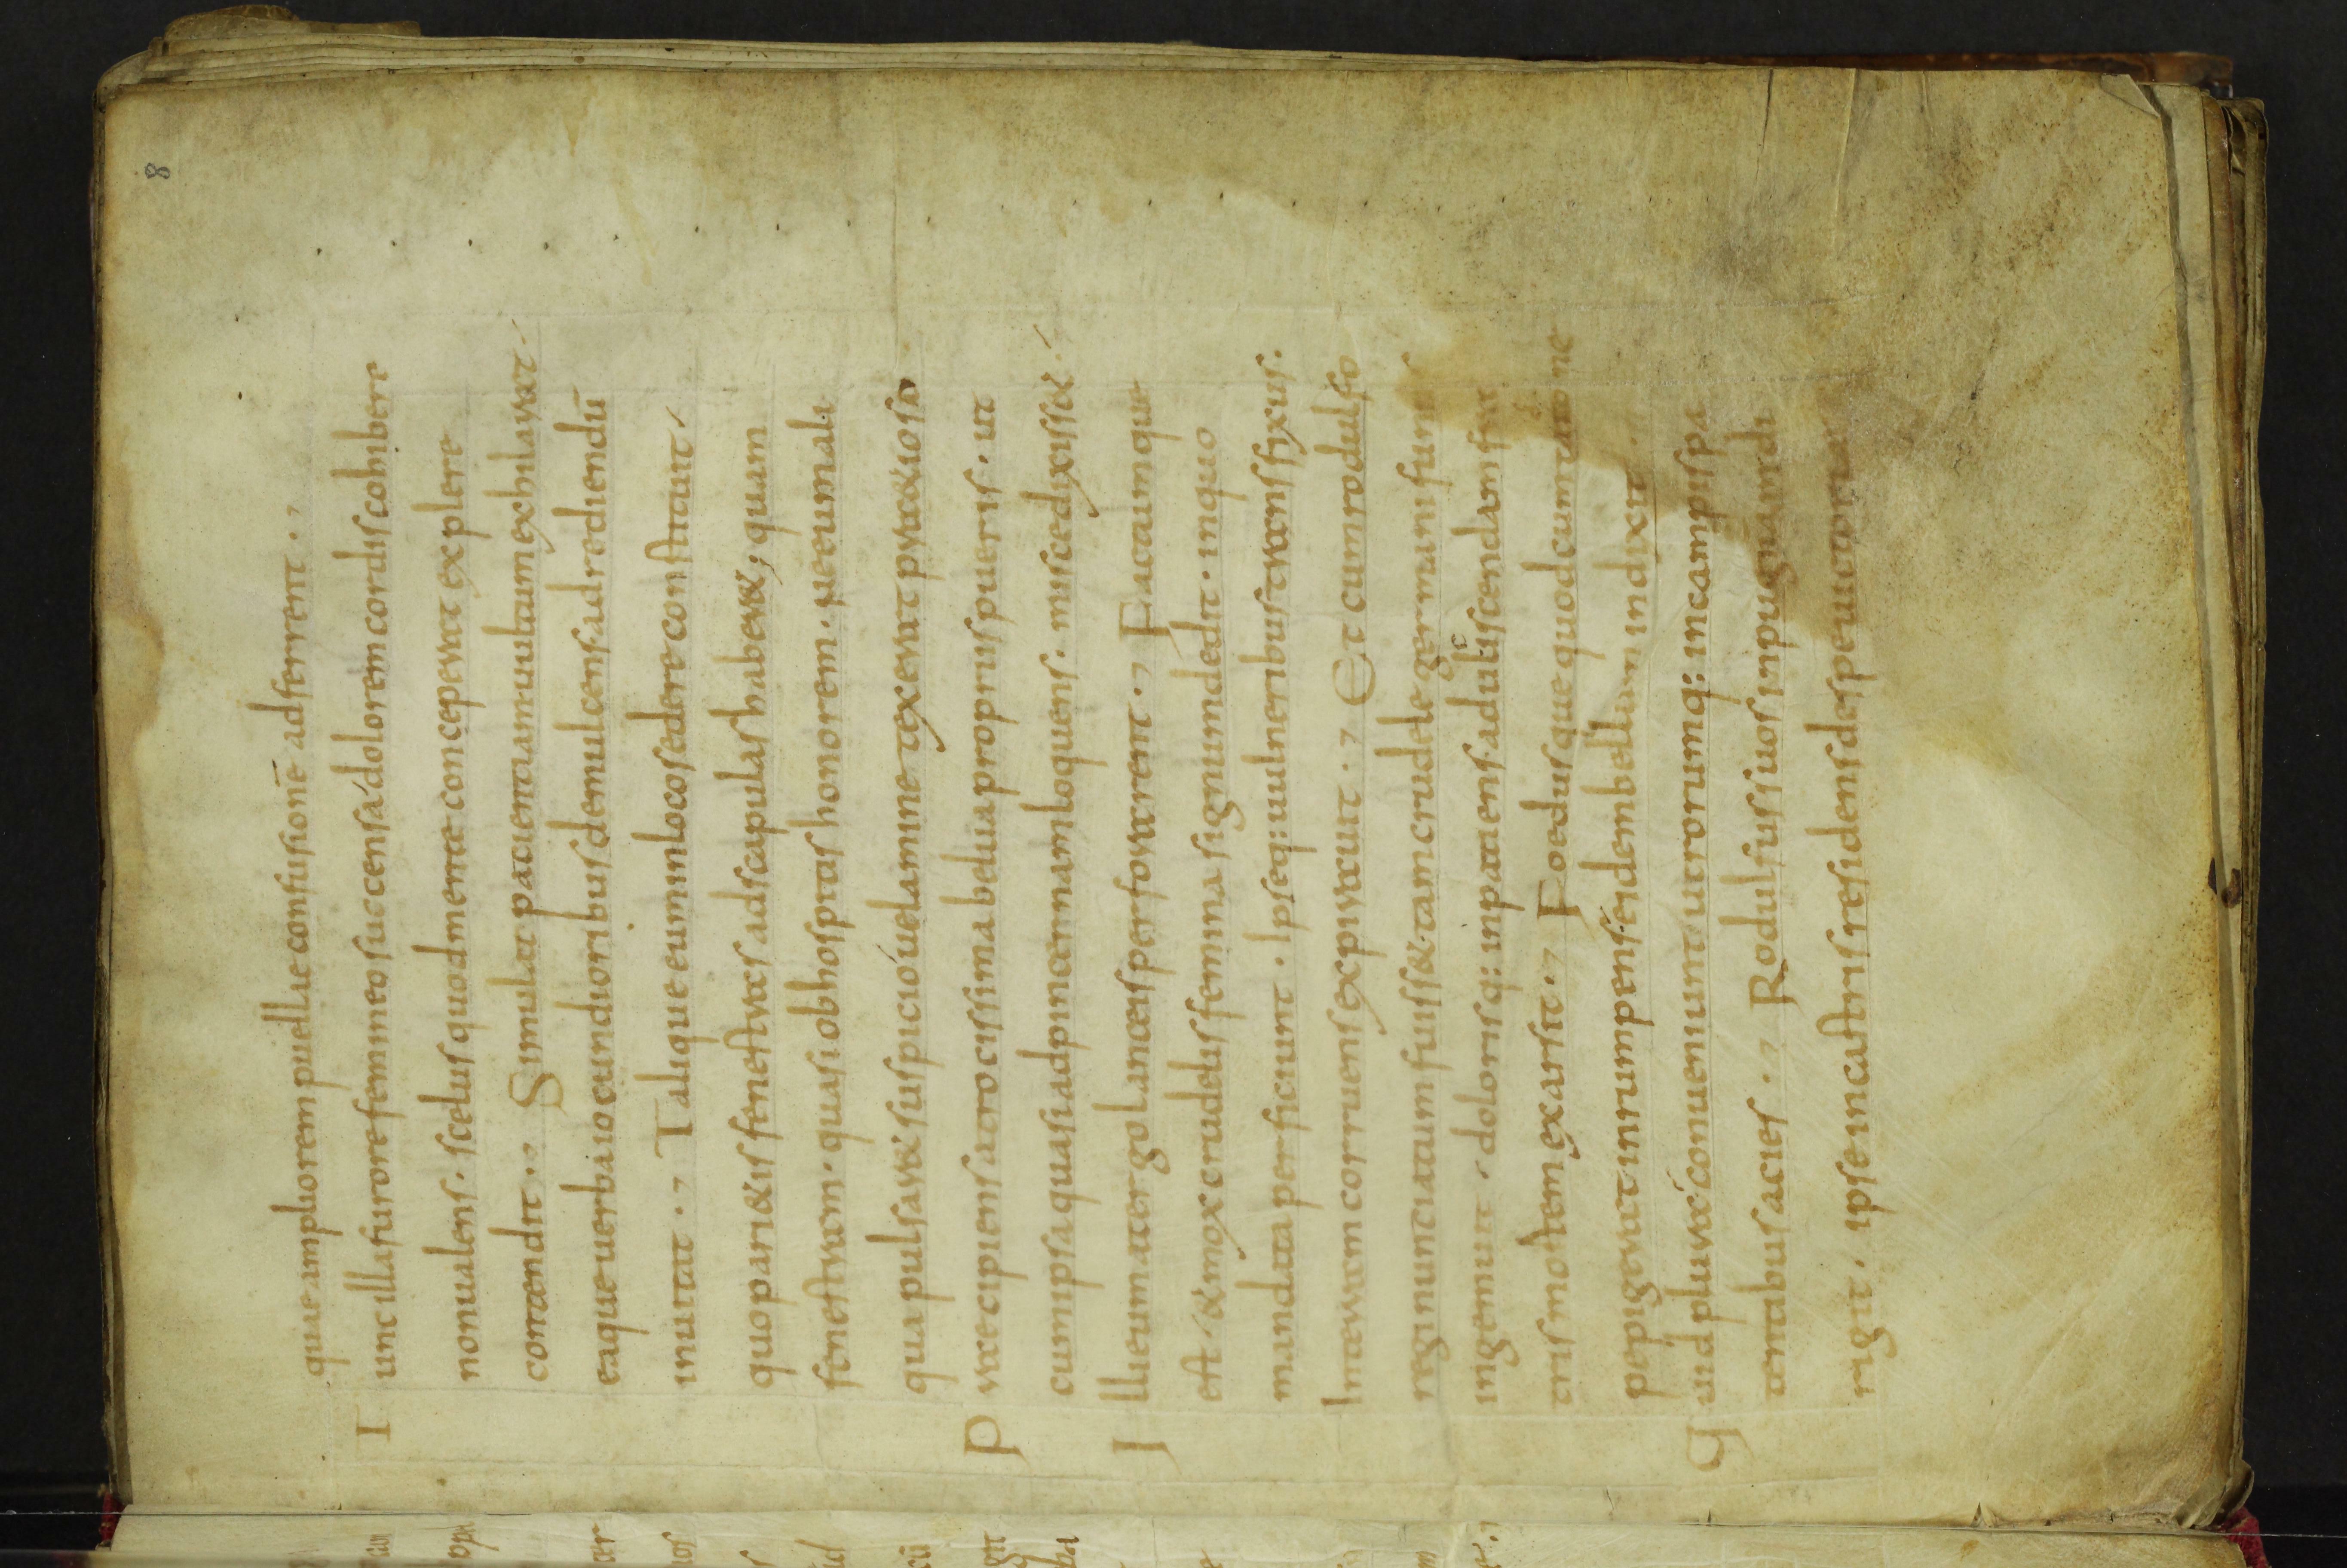 8
quae ampliorem puellae confusionē adferrent.,
Tunc illa furore femineo succensa dolorem cordis cohibere
non ualens. scelus quod mente conceperat explere
contendit., Simulat patientiam uultum exhilarat.
eaque uerba iocundioribus demulcens ad rediendū
inuitat., Talique eum in loco sedere constituit.
quo pari&is fenestras ad scapulas haber&; quam
fenestram. quasi ob hospitas honorem. ne eum ali
qua pulsar& suspicio uelamine texerat pra&ioso
Praecipiens atrocissima belua propriis pueris. ut
cum ipsa quasi ad pincernam loquens. misce dixiss&.
Illi eum a tergo lanceis perforarent., Factumque
est & mox crudelis femina signum dedit. inquo
mandata perficiunt. Ipseq: uulneribus transfixus.
In terram corruens expirauit., Et cum rodulfo
regi nunciatum fuiss& tam crudele germani funus
ingemuit. dolorisq: inpatiens. ad ulciscendam fra
tris mortem exarsit., Foedusque quod cum tatone
pepigerat inrumpens. eidem bellum indixit.
Quid plura conueniunt utrorumq: in campis pa
tentabus acies., Rodulfus suos in pugnam di
rigit. ipse in castris residens de spe uictoriae